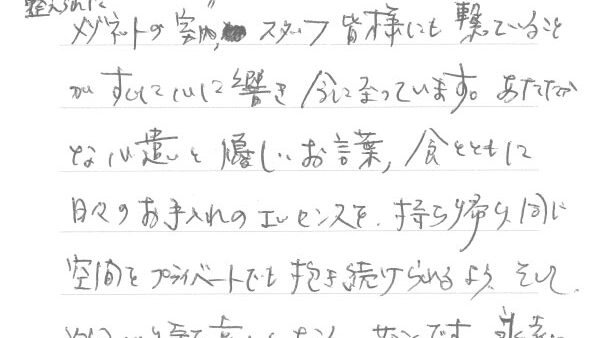 整えられた
メゾネットの室内, スタッフ皆様にも繋っていること
がすごく心に響き今に至っています。あたたか
な心遣いと優しいお言葉, 食とともに
日々のお手入れのエッセンスを、持ち帰り、同じ
空間をプライベートでも抱き続けられるよう、そして、
です